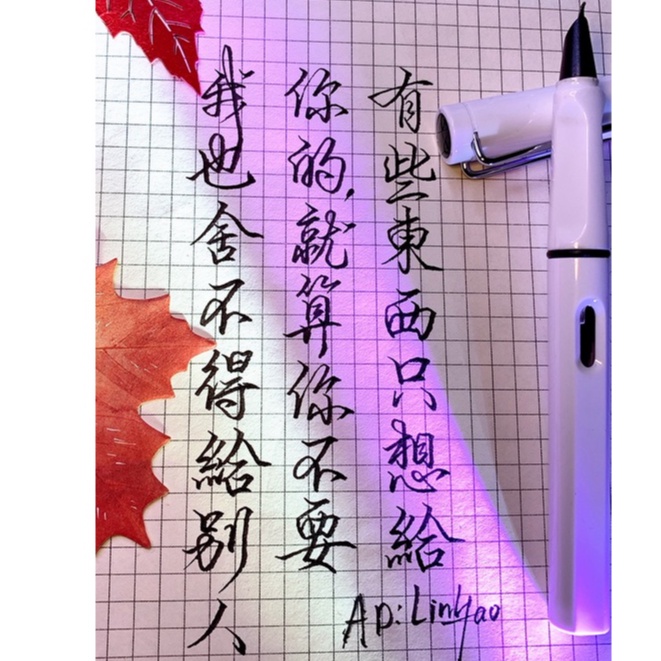 有些東西只想給
你的,就算你不要
我也舍不得給别人
AD:LinYao